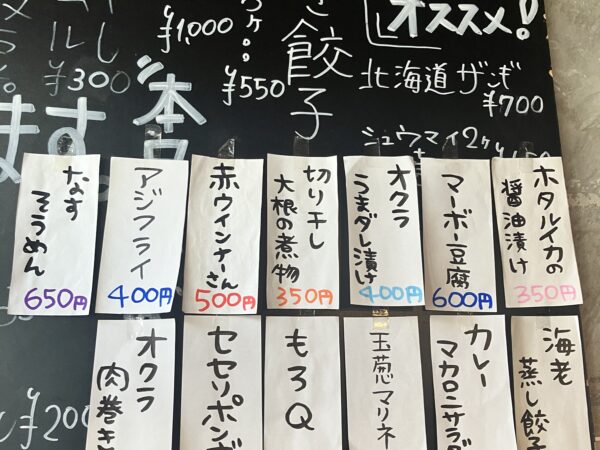 オススメ!
北海道ザンギ
¥700
シュウマイ2ヶ
餃子
¥550
¥1,000
¥300
本日
ます。
ホタルイカの
醤油漬け
350円
マーボー豆腐
600円
オクラ
うまダレ漬け
400円
切り干し
大根の煮物
350円
赤ウインナーさん
500円
アジフライ
400円
なす
そうめん
650円
海老
蒸し餃子
カレー
マカロニサラダ
玉葱マリネ
もろQ
セセリポン
オクラ
肉巻き
¥200